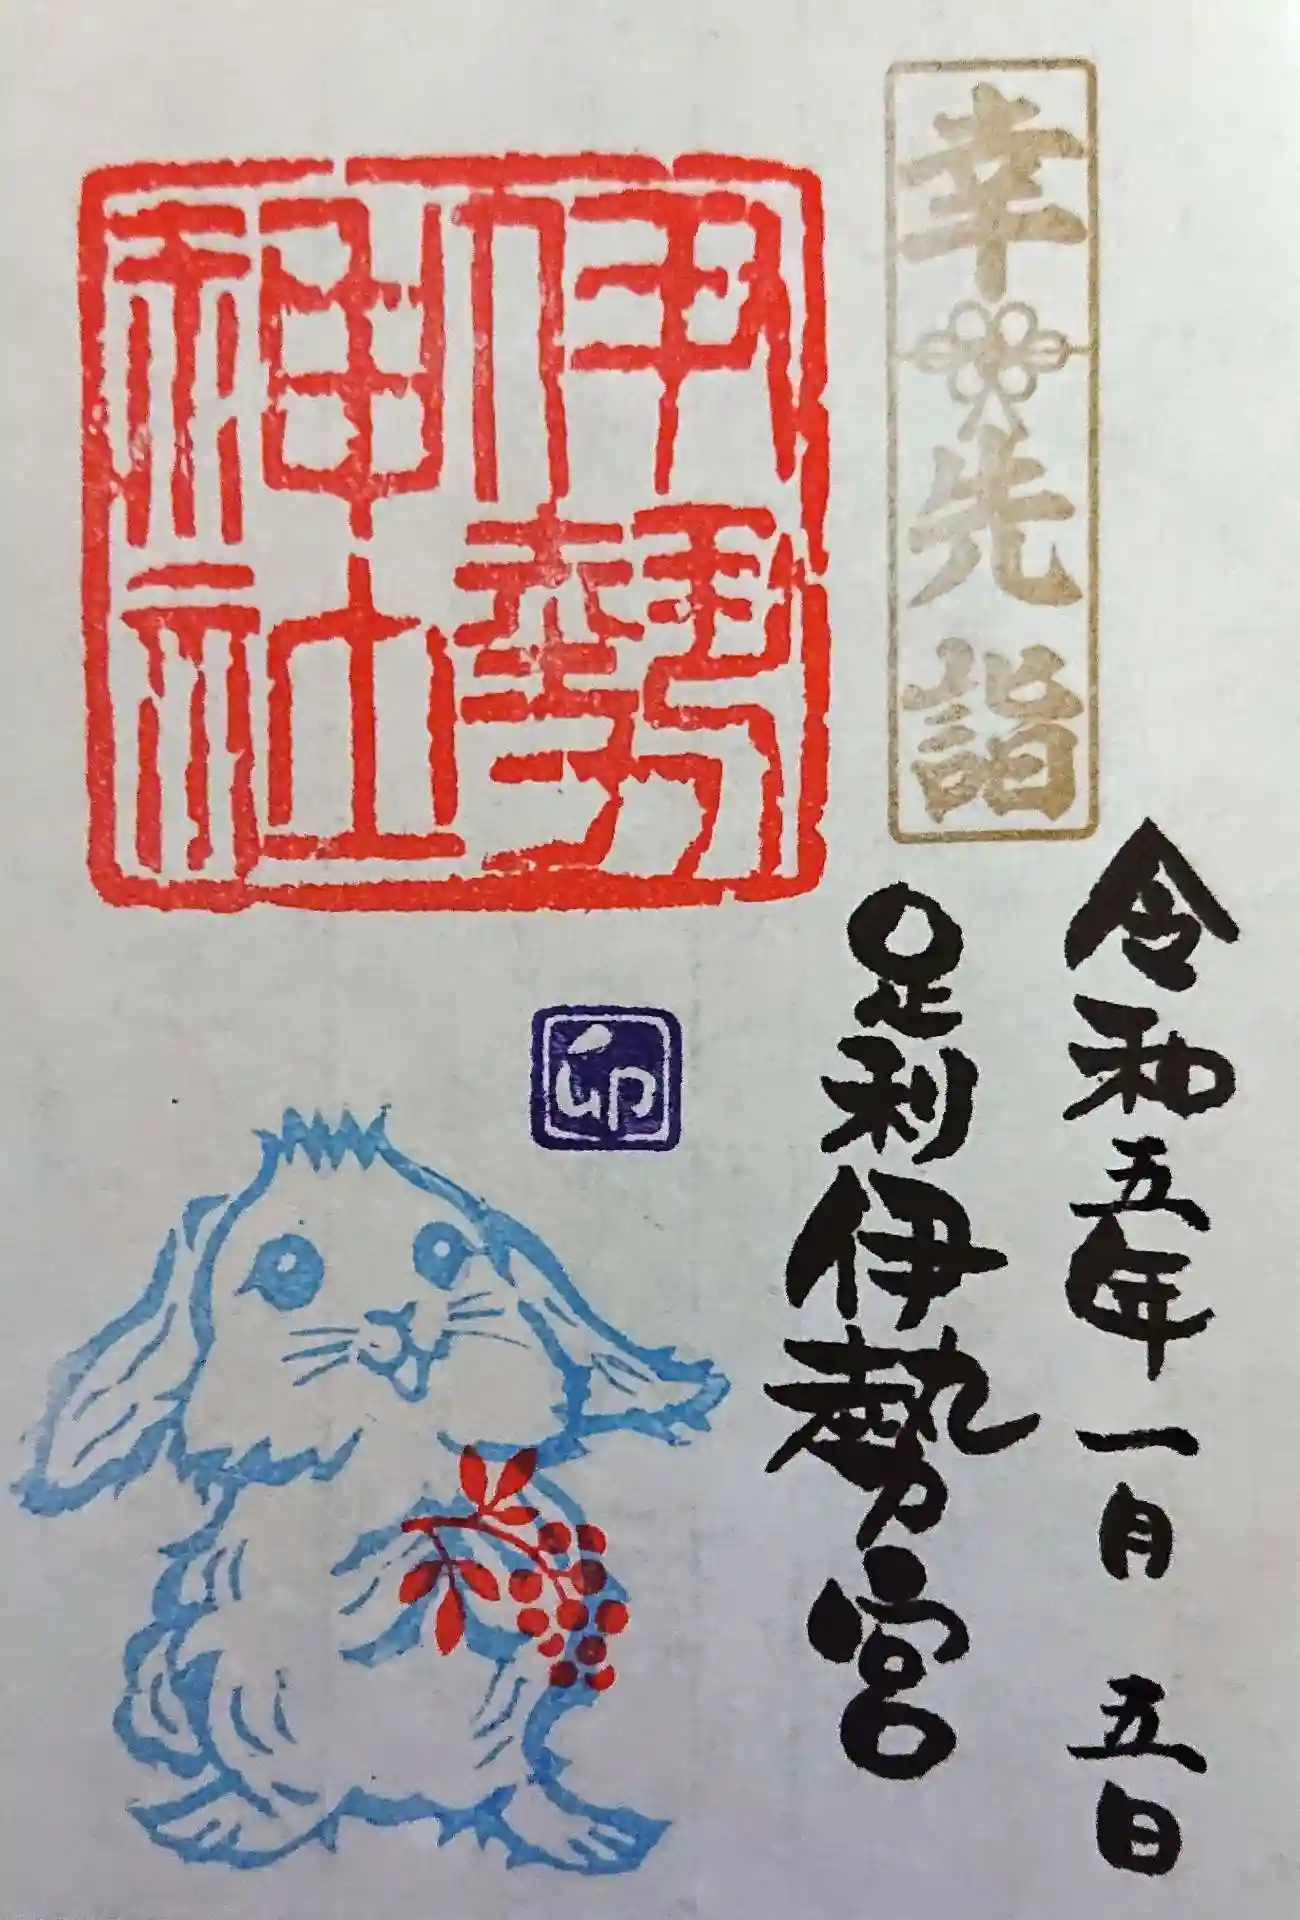 幸先詣
令和五年一月五日
足利伊勢宮
伊勢
神社
卯